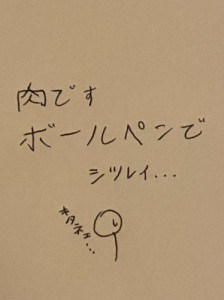 肉です
ボールペンで
シツレイ...
キタネェ...